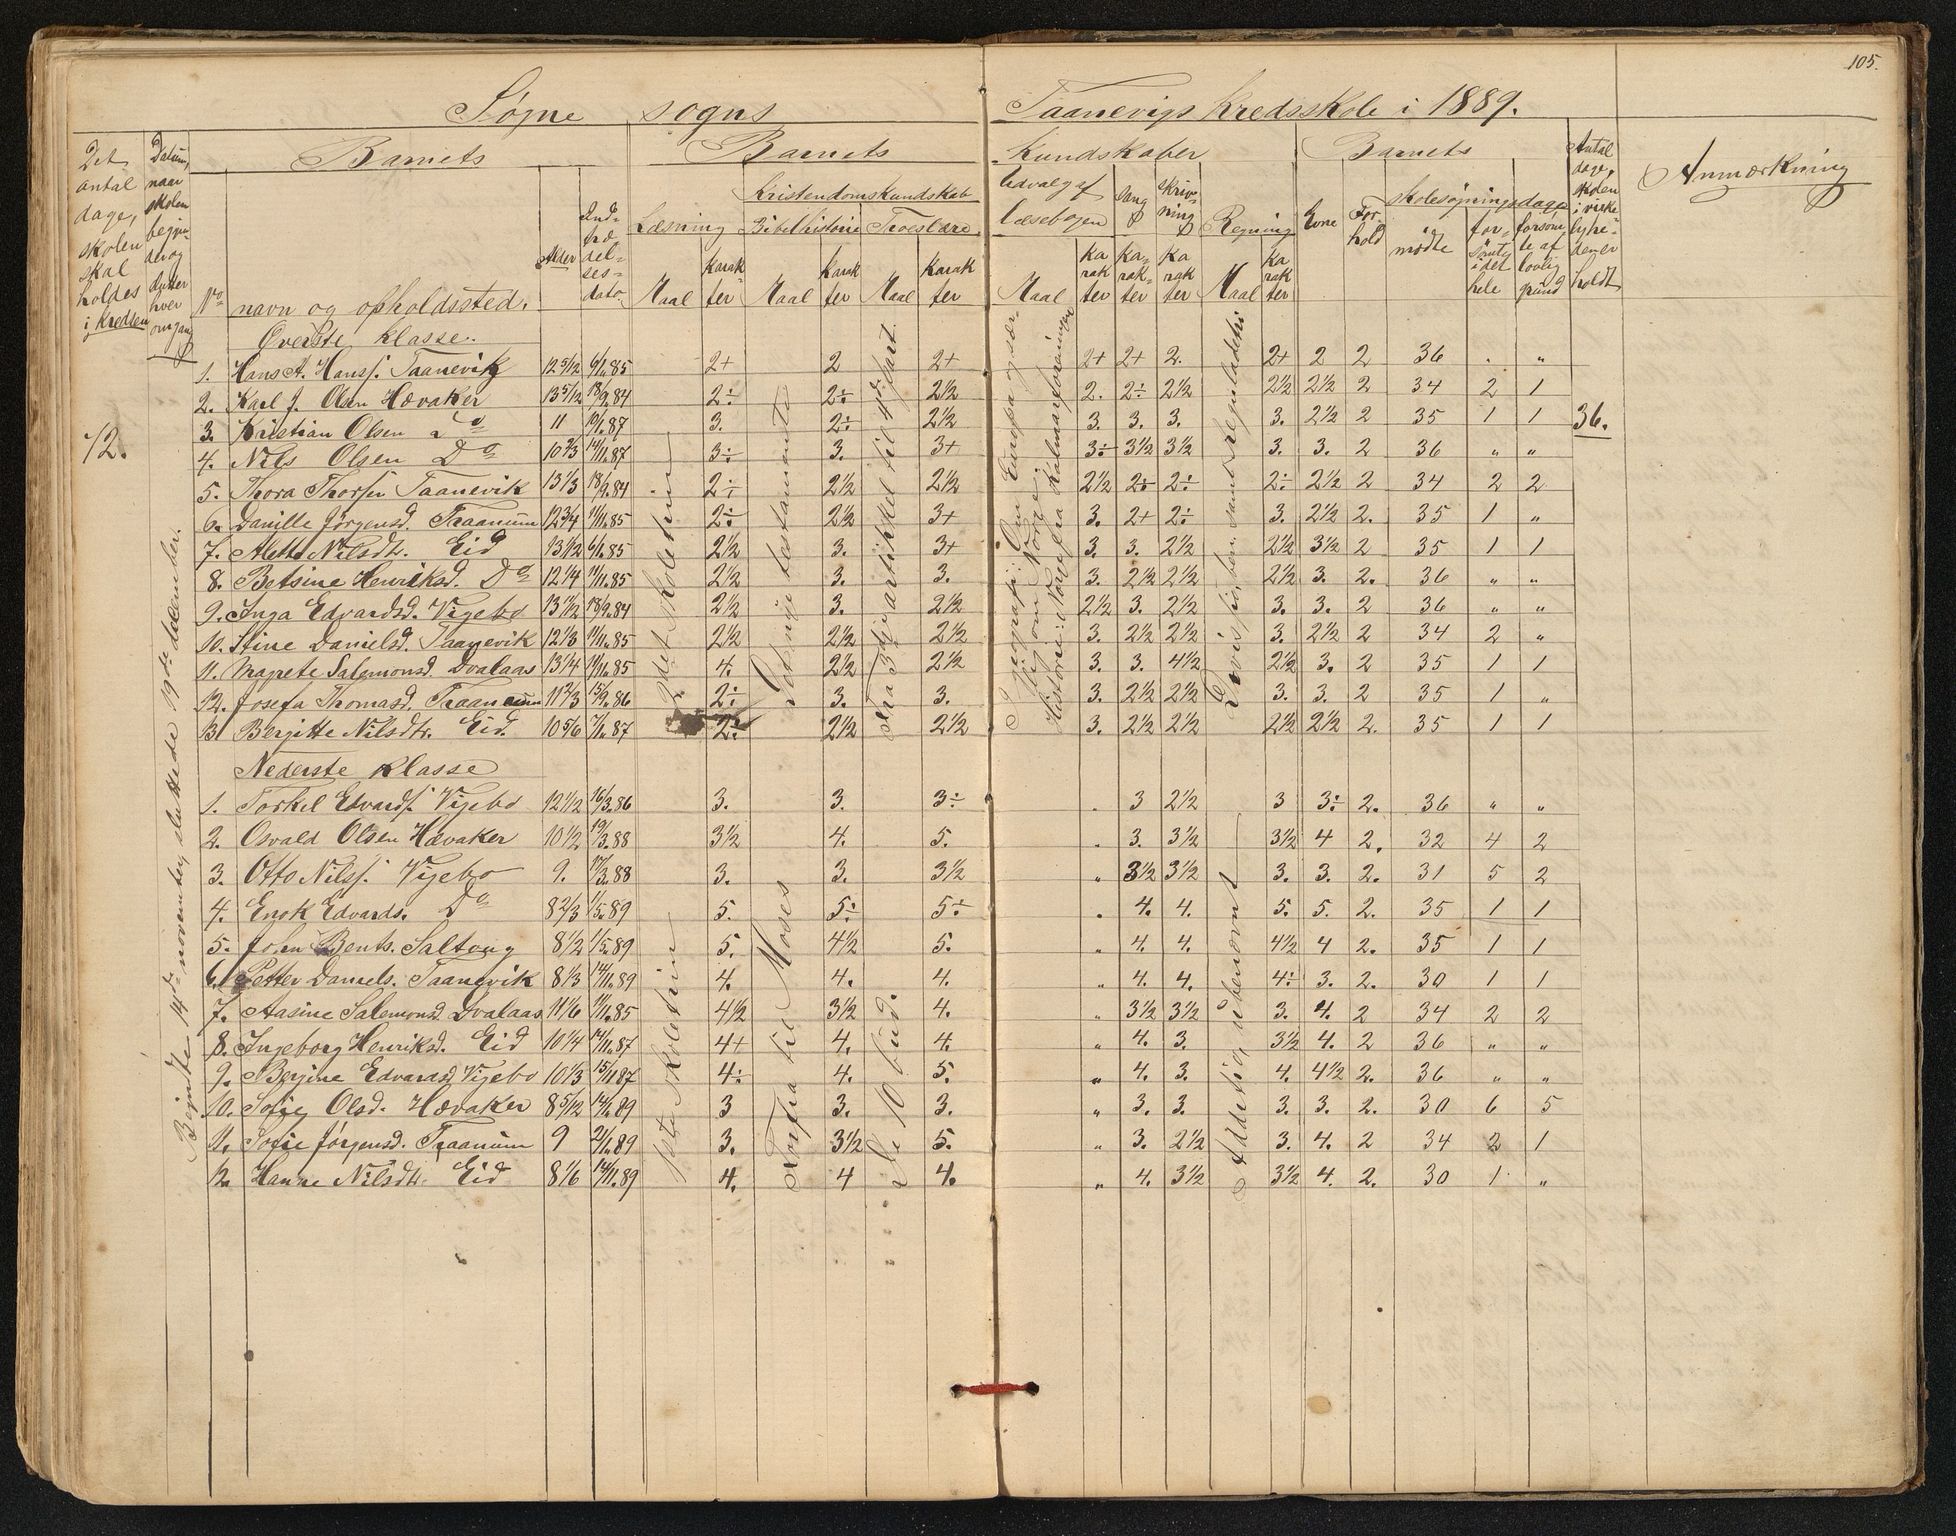 105.
Søgne sogns Taanevigs kredsskole i 1889.
Det antal dage, skolen skal holdes i kredsen
Datum, naar skolen begyn- der og slutter hver omgang
Barnets
No
navn og opholdssted.
Alder
Ind- træ- del- ses- dato.
Barnets Kundskaber
Læsning
Maal
Karak ter
Kristendomskundskab
Bibelhistorie
Maal
Karak ter
Troeslære
Maal
Karak ter
Udvalg af læsebogen
Maal
Ka rak ter
Sang
Ka- rak- ter
Skriv- ning
Ka rak ter
Regning
Maal
Ka rak ter
Barnets
Evne
For- hold
skolesøgningsdage
mødte
for- sømte i det hele
forsømte af lovlig grund
Antal dage, skolen i virke- lighe- den er holdt
Anmærkning
72.
Begyndte 14de november, sluttede 19de december.
36.
Øverste klasse.
1. Hans A. Hanss. Taanevik 12 5/12 6/11.85 2+ 2 2+ 2+ 2+ 2. 2+ 2 2 36 . „
2. Karl J. Olsen Hævaker 13 5/12 18/9.84 2÷ 2÷ 2½ 2. 2÷ 2½ 2½ 2½ 2 34 2 1
3. Kristian Olsen Do 11 19/1.87 3. 2÷ 2½ 3. 3. 3. 3. 2½ 2 35 1 1
4. Nils Olsen Do 10 2/3 14/11.87 3÷ 3. 3+ 3÷ 3½ 3½ 3. 3. 2 36 „ „
5. Thora Thorsen Taanevik 13 1/3 18/9.84 2÷ 2½ 2½ 2½ 2÷ 2÷ 2÷ 2½ 2 34 2 2
6. Danille Jørgensd. Traanum 12 3/4 11/11.85 2÷ 2½ 3+ 3. 2+ 2÷ 3. 2½ 2. 35 1 „
7. Alette Nilsdtr. Eid 13 1/2 6/11.85 2½ 3. 3+ 3. 3. 2½ 2½ 3½ 2 35 1 1
8. Betsine Henriksd. Do 12 1/4 11/11.85 2½ 3. 3. 3. 2½ 2½ 2½ 3. 2. 36 „ „
9. Inga Edvardsd. Vigebo 13 1/2 18/9.84 2½ 3. 2½ 2½ 3. 2½ 3. 3. 2 36 „ „
10. Stine Danielsd. Taanevik 12 1/3 11/11.85 2½ 2½ 2½ 3. 2½ 2½ 3. 2½ 2 34 2 „
11. Magrete Salemonsd. Dvalaas 13 1/4 11/11.85 4. 2½ 2½ 3. 3. 4½ 2½ 3. 2 35 1 1
12. Josefa Thomasd. Traanum 11 2/3 15/9.86 2÷ 3. 3. 3. 2½ 2½ 3. 3. 2 35 1 „
13 Bergitte Nilsdtr. Eid. 10 5/6 7/11.87 2÷ 2½ 2½ 3. 2½ 2½ 2½ 2½ 2. 35 1 1
Det nye testamente
Fra 3die artikkel til 4de part.
Geografi: Om Europa og sær- lig om Norge.
Historie: Norge fra Kalmarforeningen
Divisjon, ben. samt reguladetri
Nederste klasse
1. Torkel Edvards. Vigebo 12 1/2 16/3.86 3. 3. 3÷ . 3 2½ 3 3÷ 2. 36 „ „
2. Osvald Olsen Hævaker 10 1/2 19/3.88 3½ 4. 5. . 3. 3½ 3½ 4 2. 32 4 2
3. Otto Nilss. Vigebo 9. 17/3.88 3. 3. 3½ „ 3½ 3½ 3. 3. 2. 31 5 2
4. Enok Edvards. Do 8 2/3 1/5.89 5. 5÷ 5÷ „ 4. 4. 5. 5. 2. 35 1 1
5. John Bents. Saltong 8 1/2 1/5.89 5. 4½ 5. „ 4. 4. 4½ 4 2. 35 1 1
6. Petter Daniels. Taanevik 8 1/3 14/11.89 4. 4. 4. „ 4. 4. 4÷ 3. 2. 30 1 1
7. Aasine Salemonsd Dvalaas 11 1/6 11/11.85 4½ 3½ 4. „ 3½ 3½ 3. 4. 2 34 2 2
8. Ingeborg Henriksd. Eid 10 1/4 14/11.87 4+ 4. 4. „ 4. 3. 3½ 4. 2 36 „ „
9. Bergine Edvardsd Vigebo 10 1/3 15/11 87 4÷ 4. 5. „ 4. 3. 4. 4½ 2. 36 „ „
10. Sofie Olsd. Hævaker 8 5/12 14/11.89 3 3. 3. „ 3. 3. 3. 3. 2. 30 6 5
11. Sofie Jørgensd. Traanum 9 2/1.89 3. 3½ 5. „ 3. 2½ 3. 4. 2 34 2 1
12. Hanne Nilsdtr. Eid 8 1/6 14/11.89 4. 4 4. „ 4. 3½ 3½ 4. 2. 30 1 „
Forfra til Moses
De 10 bud.
Addition, ubenævnt